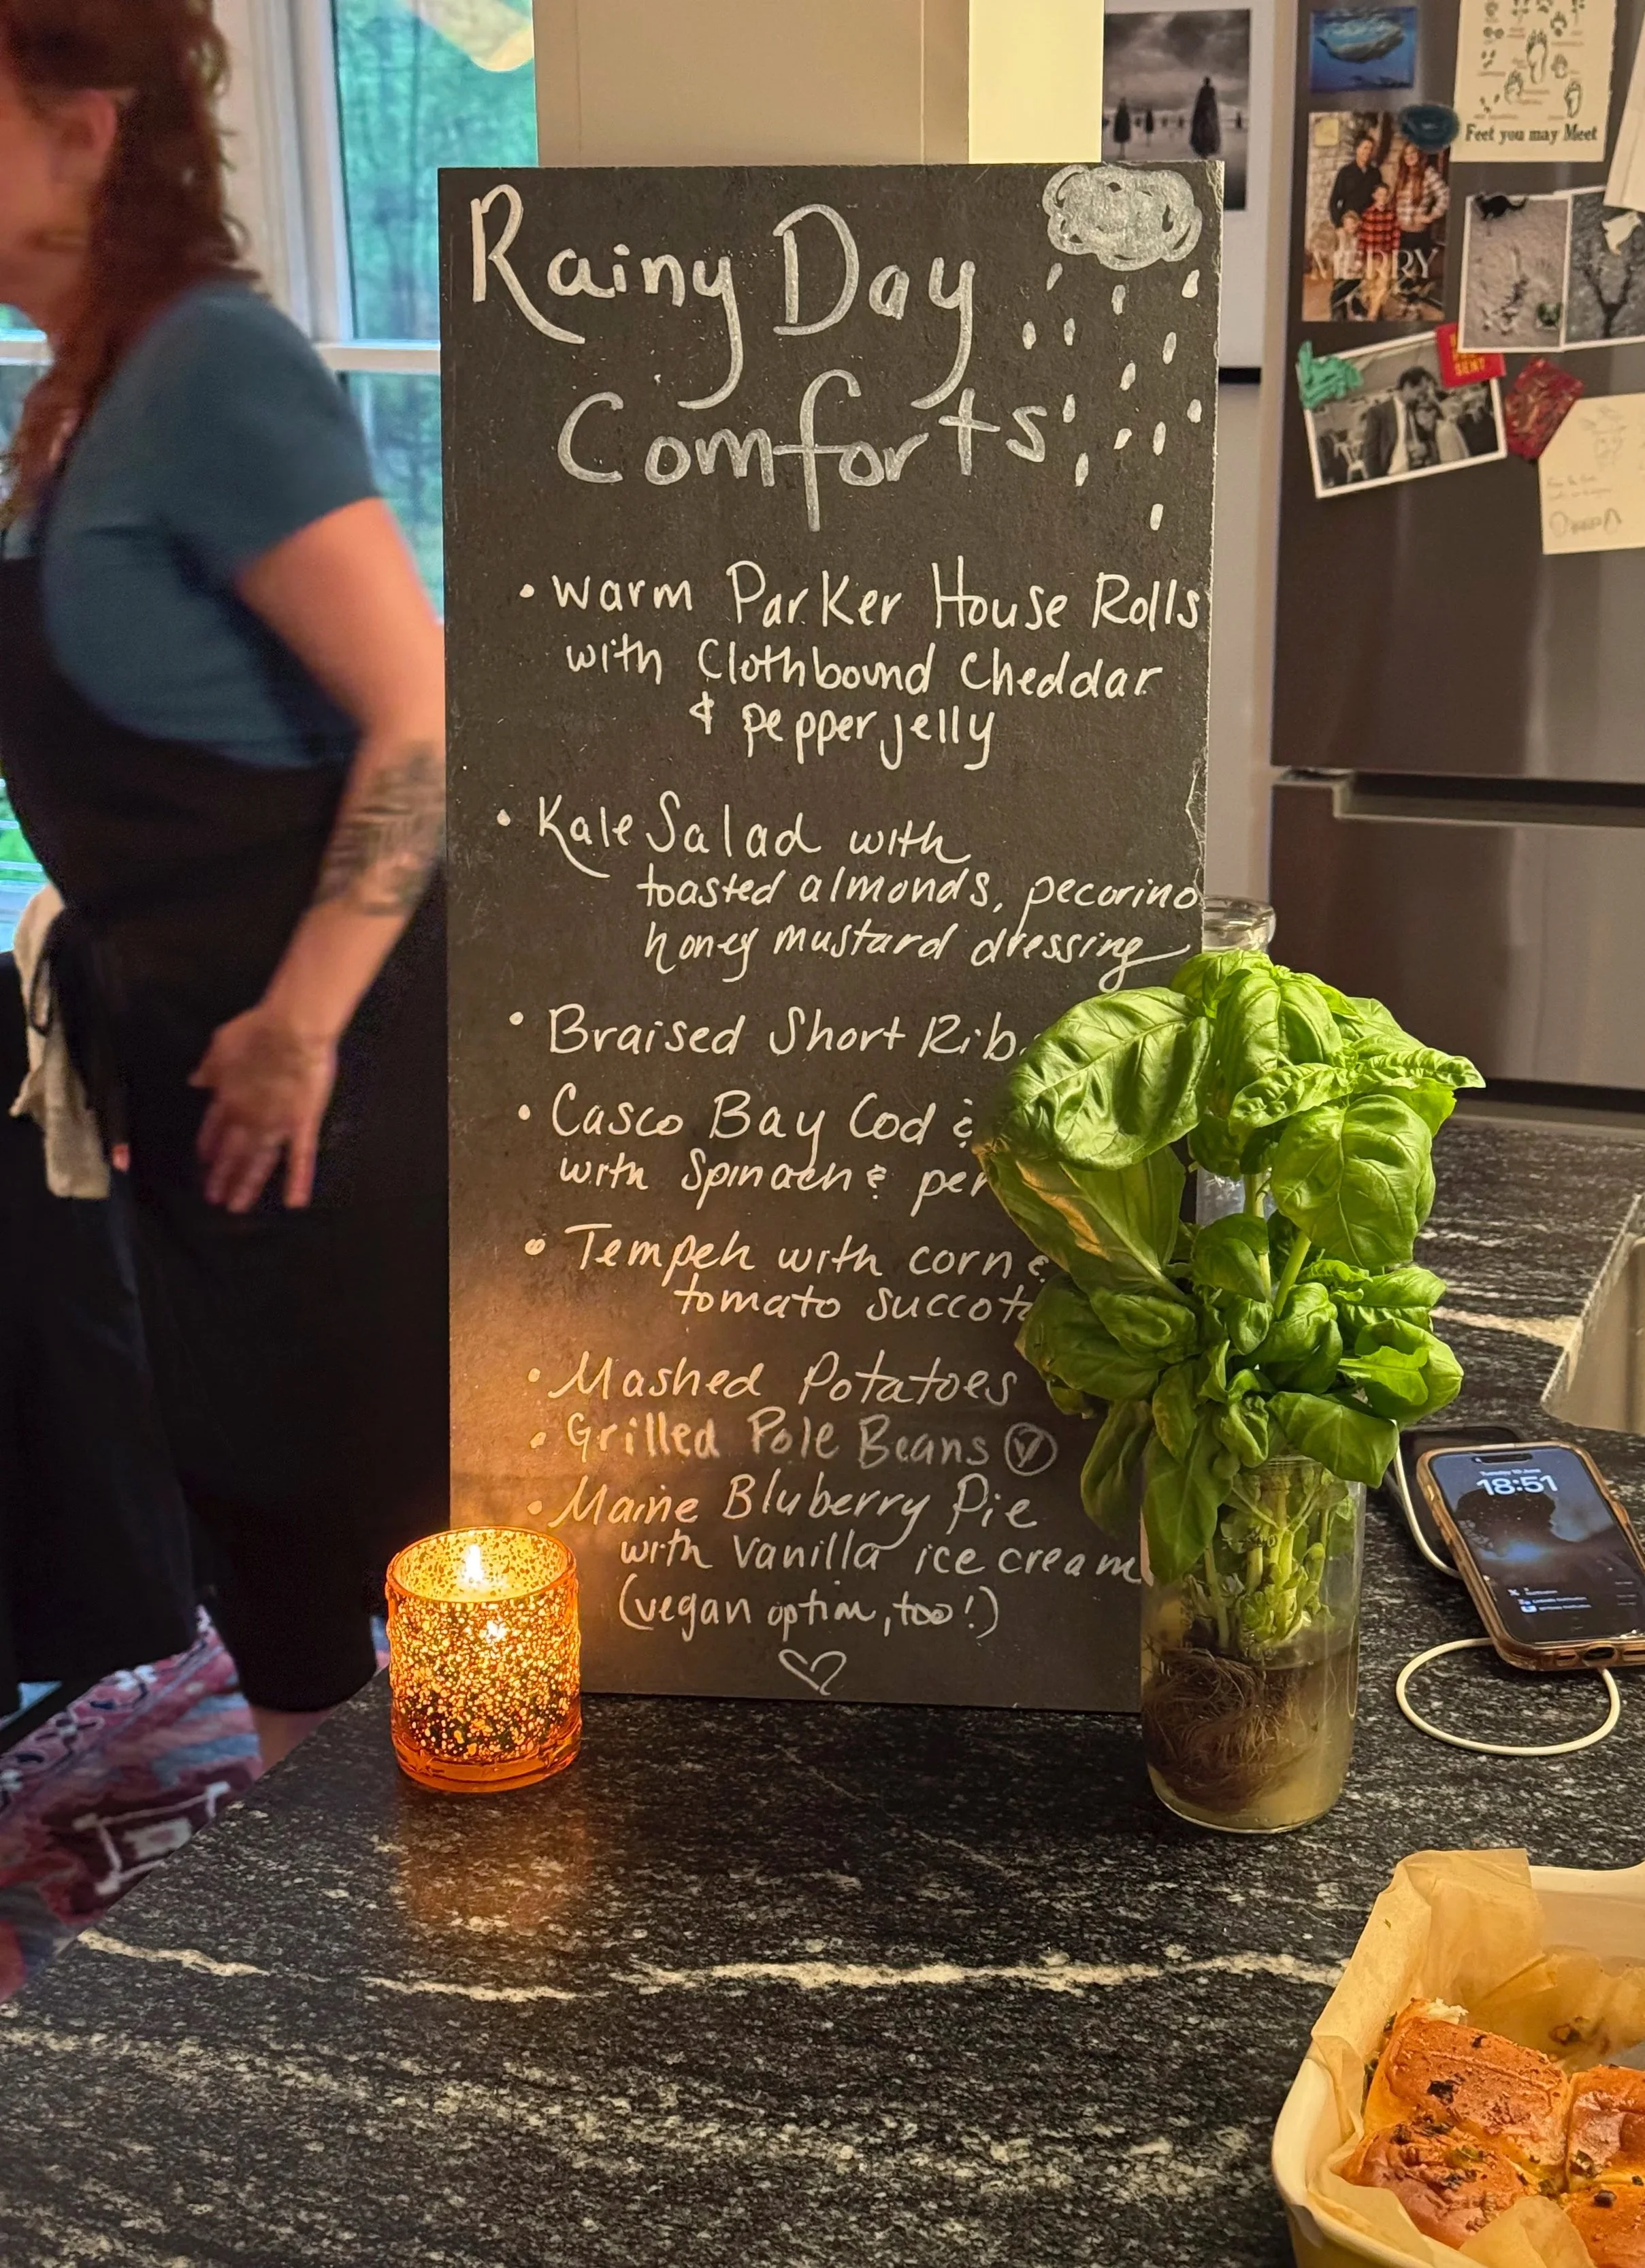 Rainy Day
Comforts
• warm Parker House Rolls
with Clothbound Cheddar
& pepper jelly
• Kale Salad with
toasted almonds, pecorino
honey mustard dressing
• Braised Short Rib
• Casco Bay Cod &
with Spinach &
• Tempeh with corn &
tomato
• Mashed Potatoes
• Grilled Pole Beans Ⓥ
• Maine Bluberry Pie
with Vanilla ice cream
(vegan option, too!)
Feet you may Meet
MERRY
SENT
18:51